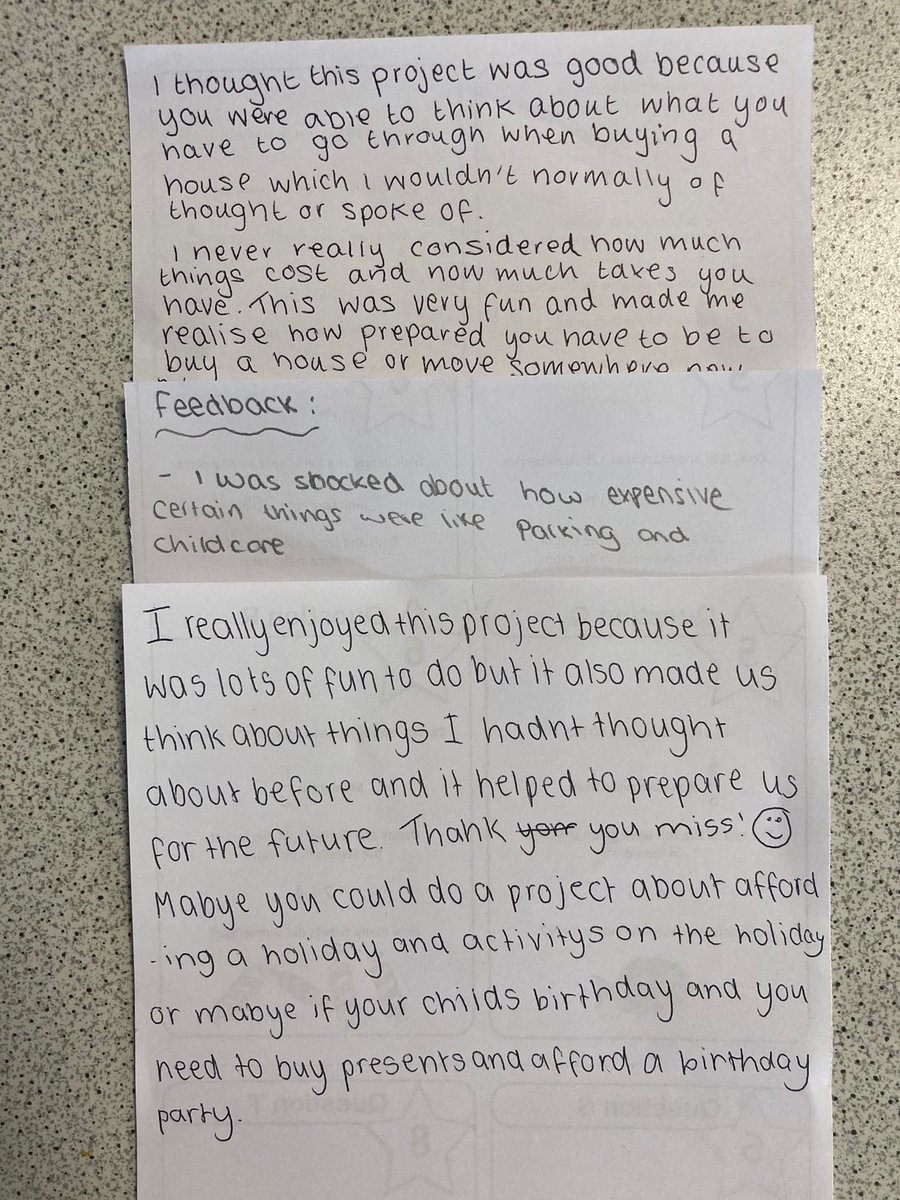 I thought this project was good because
you were able to think about what you
have to go through when buying a
house which I wouldn't normally of
thought or spoke of.
I never really considered how much
things cost and how much taxes you
have. This was very fun and made me
realise how prepared you have to be to
buy a house or move somewhere new
Feedback:
- I was shocked about how expensive
certain things were like parking and
childcare
I really enjoyed this project because it
was lots of fun to do but it also made us
think about things I hadnt thought
about before and it helped to prepare us
for the future. Thank you you miss! ☺
Mabye you could do a project about afford
-ing a holiday and activitys on the holiday
or mabye if your childs birthday and you
need to buy presents and afford a birthday
party.